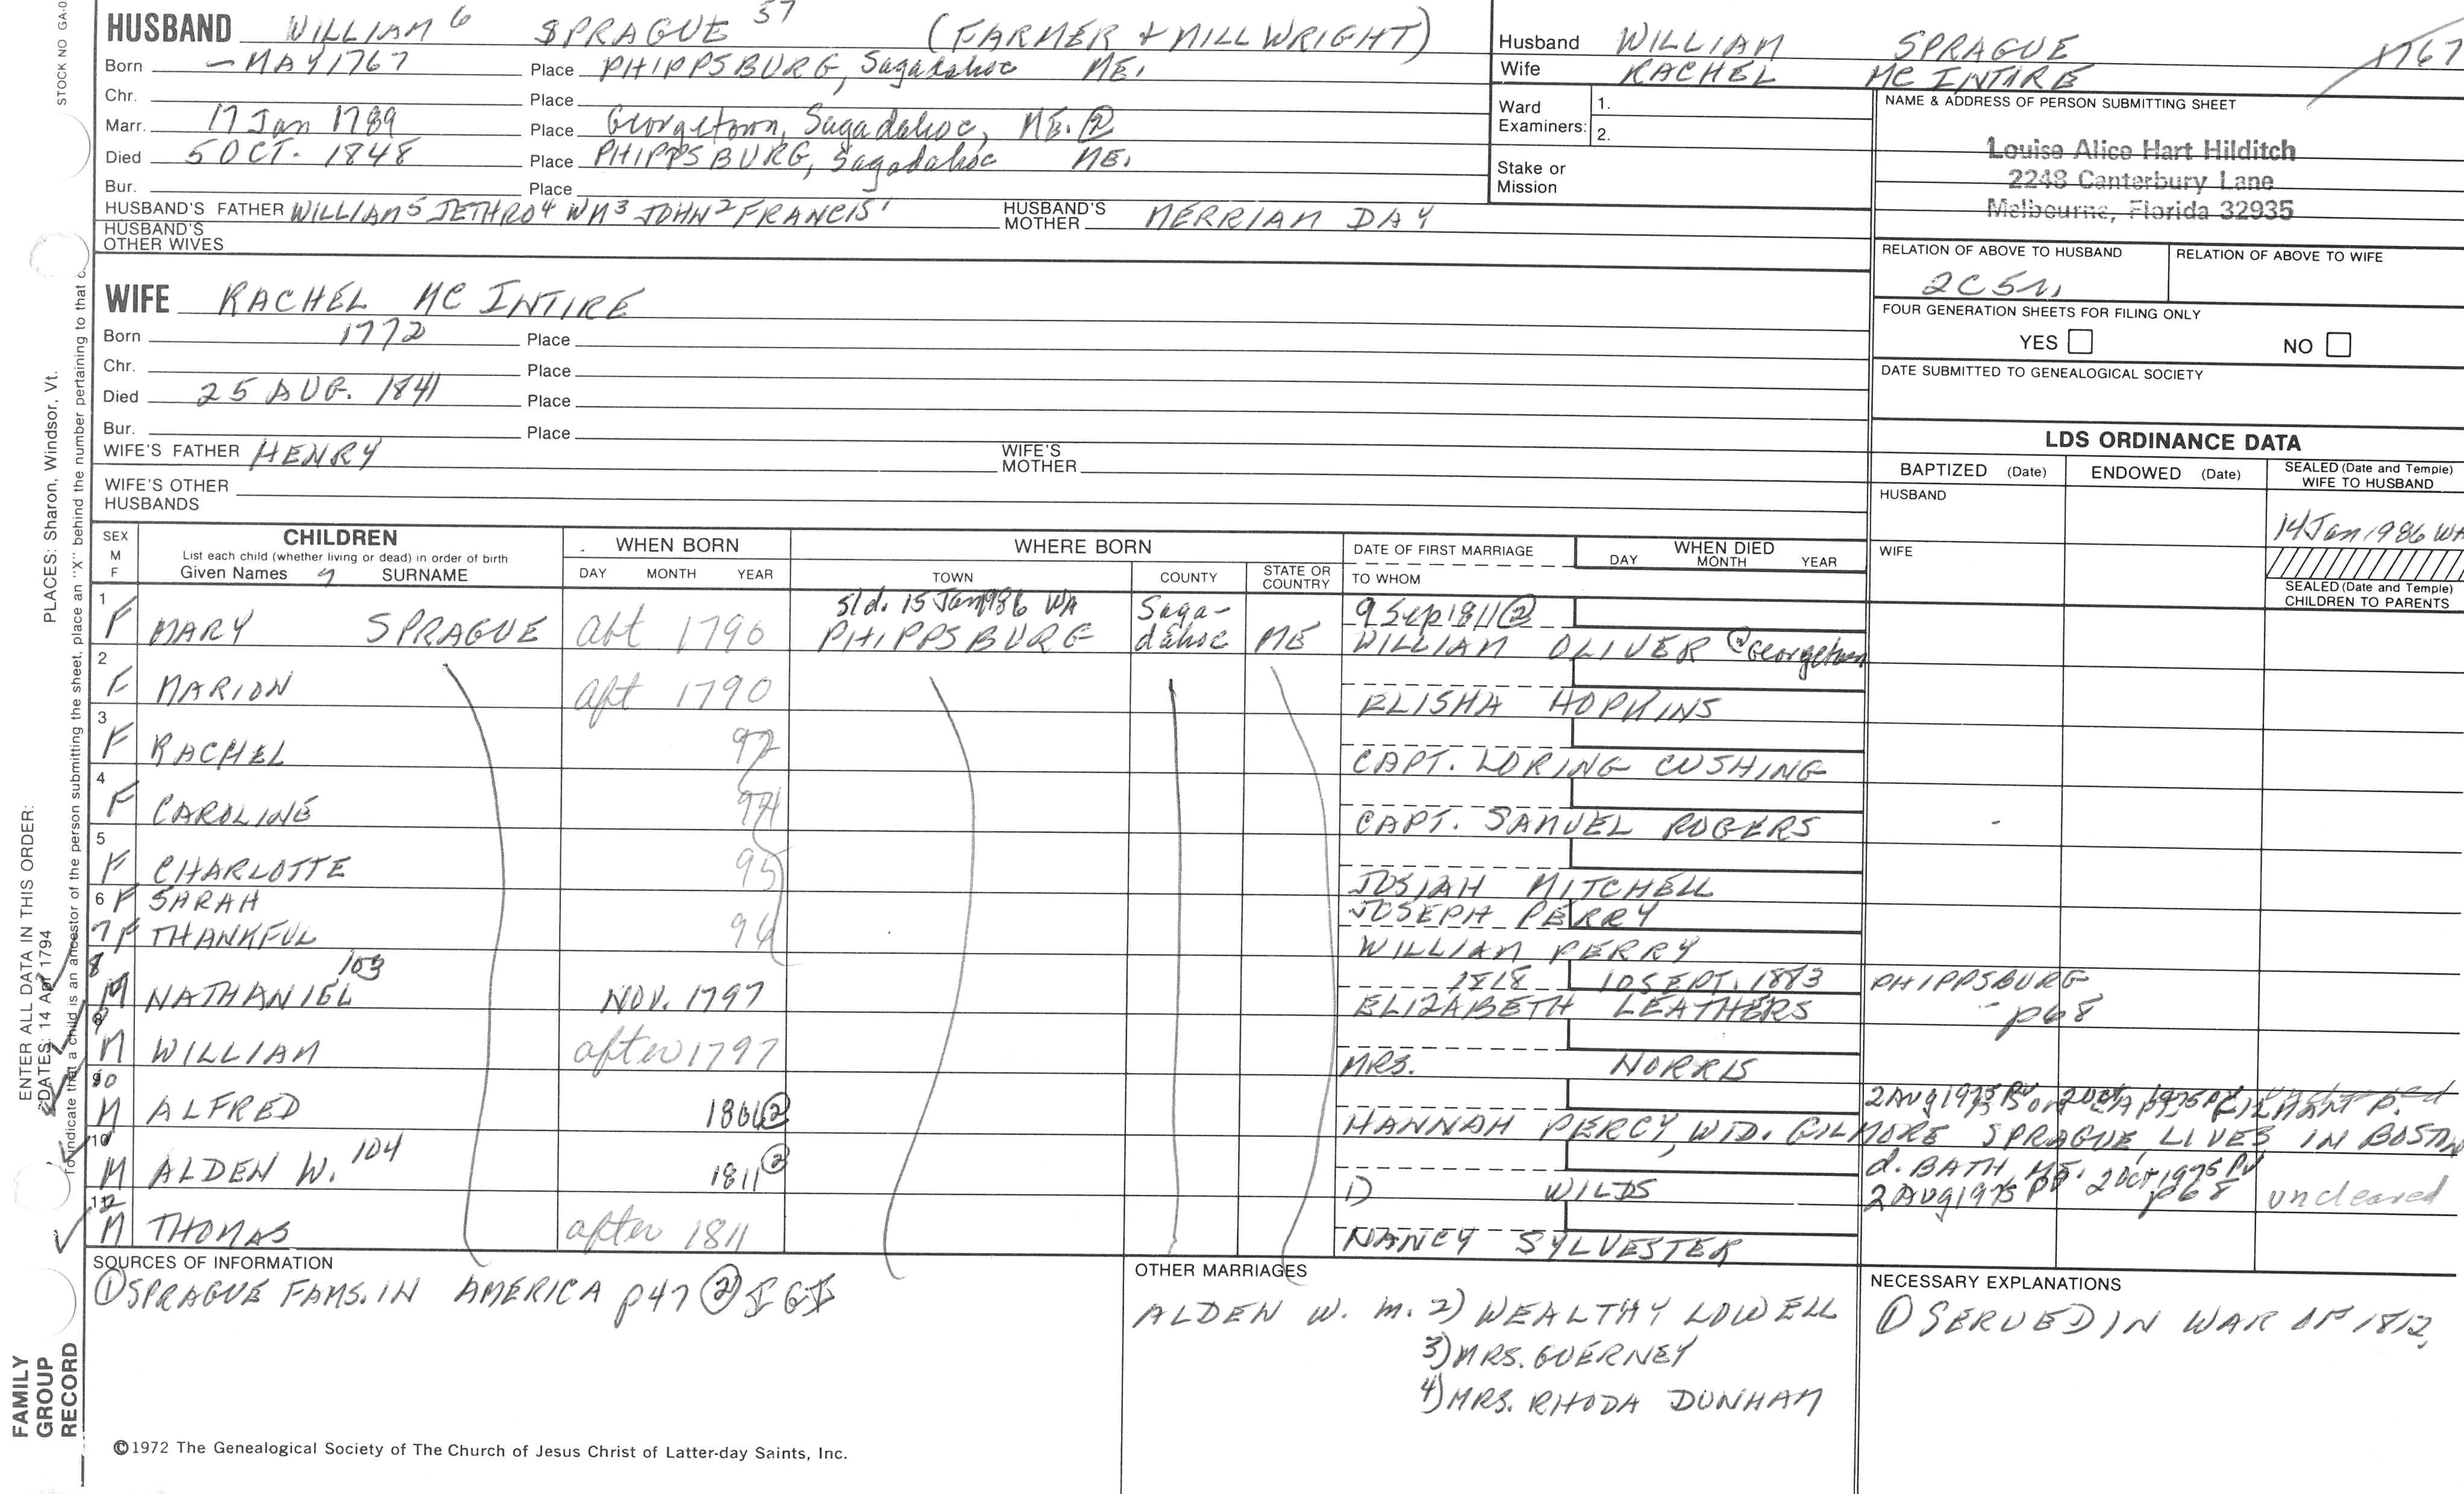 STOCK NO GA-0
HUSBAND WILLIAM 6 SPRAGUE 57 (FARMER + MILLWRIGHT)
Born - MAY 1767 Place PHIPPSBURG, Sagadahoc ME.
Chr. Place
Marr. 17 Jan 1789 Place Georgetown, Sagadahoc, ME. ②
Died 5 OCT. 1848 Place PHIPPSBURG, Sagadahoc ME.
Bur. Place
HUSBAND'S FATHER WILLIAM5 JETHRO4 WM3 JOHN2 FRANCIS1 HUSBAND'S MOTHER MERRIAM DAY
HUSBAND'S OTHER WIVES
Husband WILLIAM SPRAGUE 1767
Wife RACHEL MC INTIRE
Ward Examiners: 1.
2.
Stake or Mission
NAME & ADDRESS OF PERSON SUBMITTING SHEET
Louise Alice Hart Hilditch
2248 Canterbury Lane
Melbourne, Florida 32935
RELATION OF ABOVE TO HUSBAND RELATION OF ABOVE TO WIFE
2C5
FOUR GENERATION SHEETS FOR FILING ONLY
YES NO
DATE SUBMITTED TO GENEALOGICAL SOCIETY
WIFE RACHEL MC INTIRE
Born 1772 Place
Chr. Place
Died 25 AUG. 1841 Place
Bur. Place
WIFE'S FATHER HENRY WIFE'S MOTHER
WIFE'S OTHER HUSBANDS
LDS ORDINANCE DATA
BAPTIZED (Date) ENDOWED (Date) SEALED (Date and Temple) WIFE TO HUSBAND
HUSBAND
14 Jan 1986 WA
WIFE
SEALED (Date and Temple) CHILDREN TO PARENTS
SEX M F CHILDREN WHEN BORN WHERE BORN DATE OF FIRST MARRIAGE WHEN DIED
List each child (whether living or dead) in order of birth
Given Names SURNAME DAY MONTH YEAR TOWN COUNTY STATE OR COUNTRY TO WHOM DAY MONTH YEAR
sld. 15 Jan 1986 WA 9 Sep 1811 ②
1 F MARY SPRAGUE abt 1790 PHIPPSBURG Sagadahoc ME WILLIAM OLIVER ② Georgetown
2 F MARION aft 1790 ELISHA HOPKINS
3 F RACHEL 92 CAPT. LORING CUSHING
4 F CAROLINE 94 CAPT. SAMUEL ROGERS
5 F CHARLOTTE 95 JOSIAH MITCHELL
6 F SARAH JOSEPH PERRY
7 F THANKFUL 96 WILLIAM PERRY
8 M NATHANIEL 103 NOV. 1797 1818 10 SEPT. 1883 PHIPPSBURG
ELIZABETH LEATHERS p68
9 M WILLIAM after 1797 MRS. NORRIS
10 M ALFRED ② 2 Aug 1975 PV 2 Oct 1975 PV
HANNAH PERCY, WID. GILMORE SPRAGUE, LIVES IN BOSTON
M ALDEN W. 104 1811 ② d. BATH, ME. 2 Oct 1975 PV
1) WILDS 2 Aug 1975 PV p68 uncleared
12 M THOMAS after 1811 NANCY SYLVESTER
SOURCES OF INFORMATION
① SPRAGUE FAMS. IN AMERICA p47 ② IGI
OTHER MARRIAGES
ALDEN W. m. 2) WEALTHY LOWELL
3) MRS. GUERNEY
4) MRS. RHODA DUNHAM
NECESSARY EXPLANATIONS
① SERVED IN WAR OF 1812.
©1972 The Genealogical Society of The Church of Jesus Christ of Latter-day Saints, Inc.
ENTER ALL DATA IN THIS ORDER:
DATES: 14 Apr 1794
PLACES: Sharon, Windsor, Vt.
To indicate that a child is an ancestor of the person submitting the sheet, place an "X" behind the number pertaining to that c
FAMILY
GROUP
RECORD